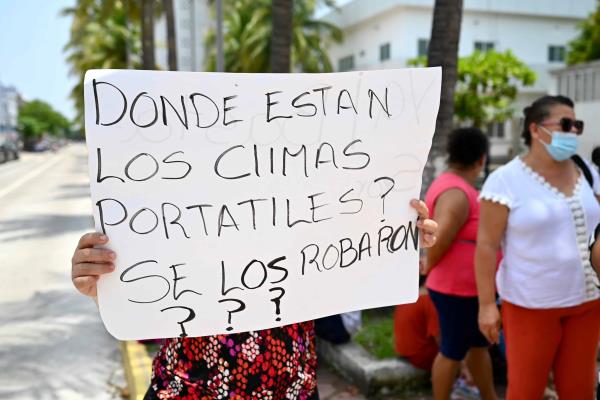 DONDE ESTAN
LOS CLIMAS
PORTATILES?
SE LOS ROBARON
? ? ?